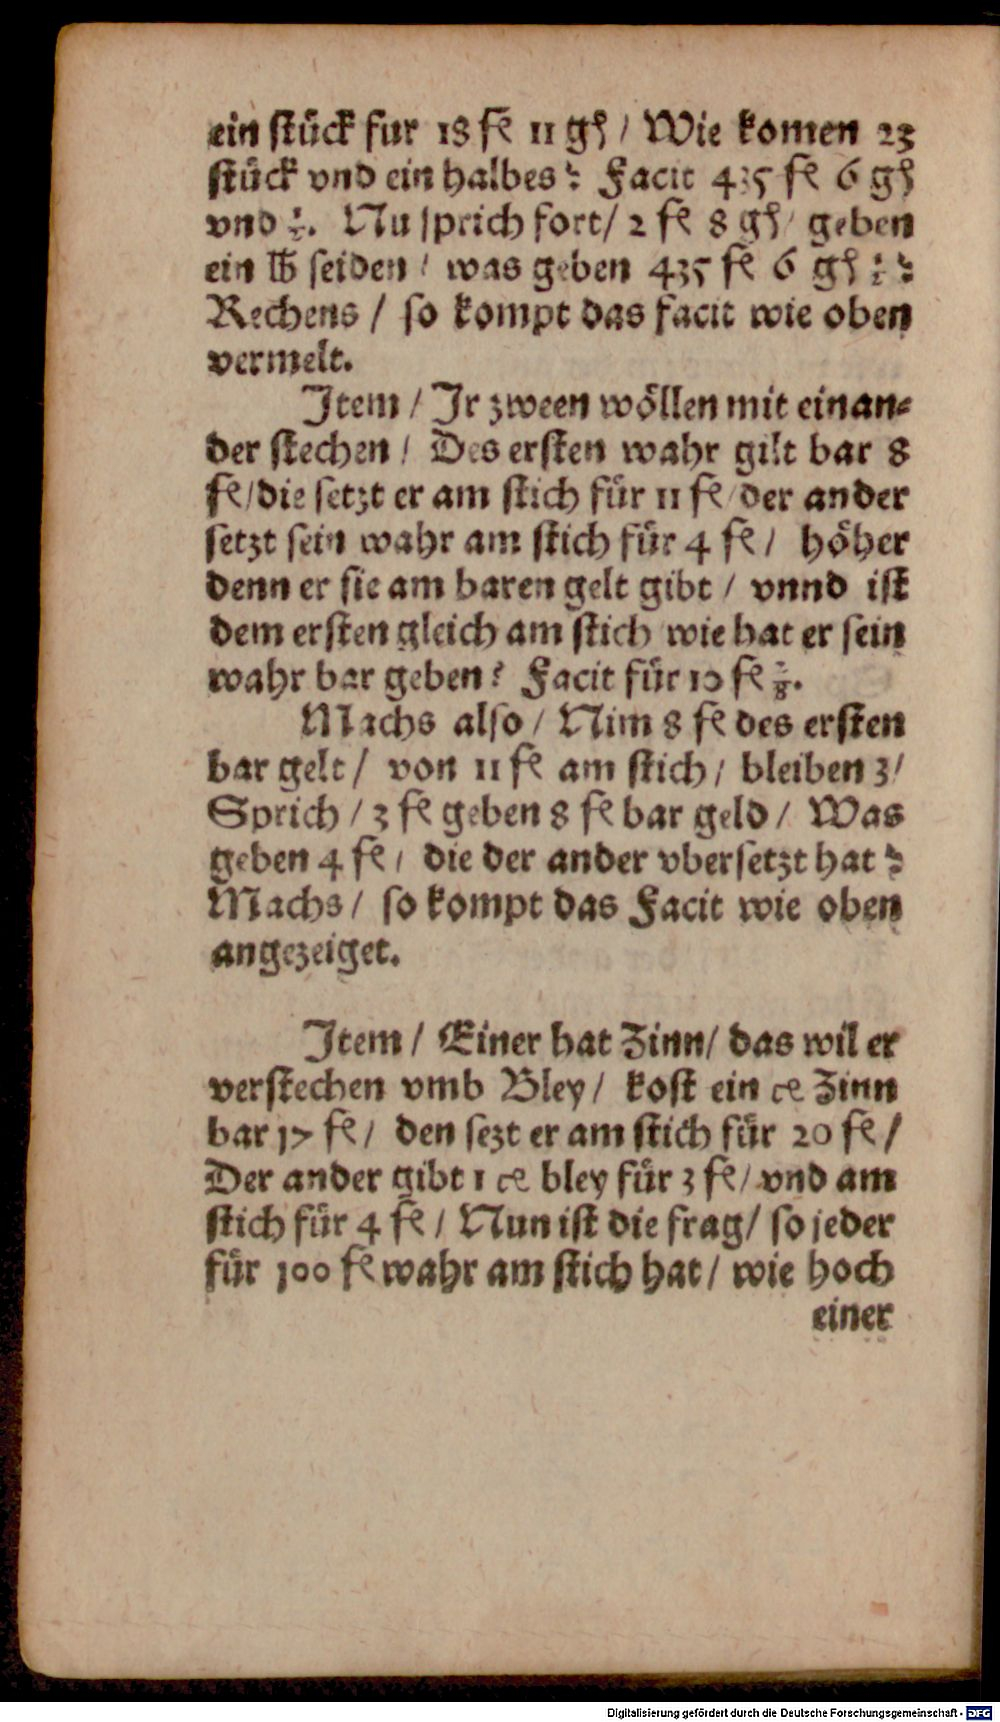 ein stück fur 18 fl 11 gß / Wie komen 23
stück vnd ein halbes? Facit 435 fl 6 gß
vnd ½. Nu sprich fort/ 2 fl 8 gß/ geben
ein lb seiden / was geben 435 fl 6 gß ½?
Rechens / so kompt das facit wie oben
vermelt.
Item / Ir zween wöllen mit einan=
der stechen / Des ersten wahr gilt bar 8
fl/die setzt er am stich für 11 fl/der ander
setzt sein wahr am stich für 4 fl / höher
denn er sie am baren gelt gibt / vnnd ist
dem ersten gleich am stich wie hat er sein
wahr bar geben? Facit für 10 fl
Machs also / Nim 8 fl des ersten
bar gelt / von 11 fl am stich / bleiben 3/
Sprich / 3 fl geben 8 fl bar geld / Was
geben 4 fl / die der ander vbersetzt hat?
Machs / so kompt das Facit wie oben
angezeiget.
Item / Einer hat Zinn/ das wil er
verstechen vmb Bley / kost ein ce Zinn
bar 17 fl / den sezt er am stich für 20 fl /
Der ander gibt 1 ce bley für 3 fl / vnd am
stich für 4 fl / Nun ist die frag/ so jeder
für 100 fl wahr am stich hat / wie hoch
einer
Digitalisierung gefördert durch die Deutsche Forschungsgemeinschaft - DFG